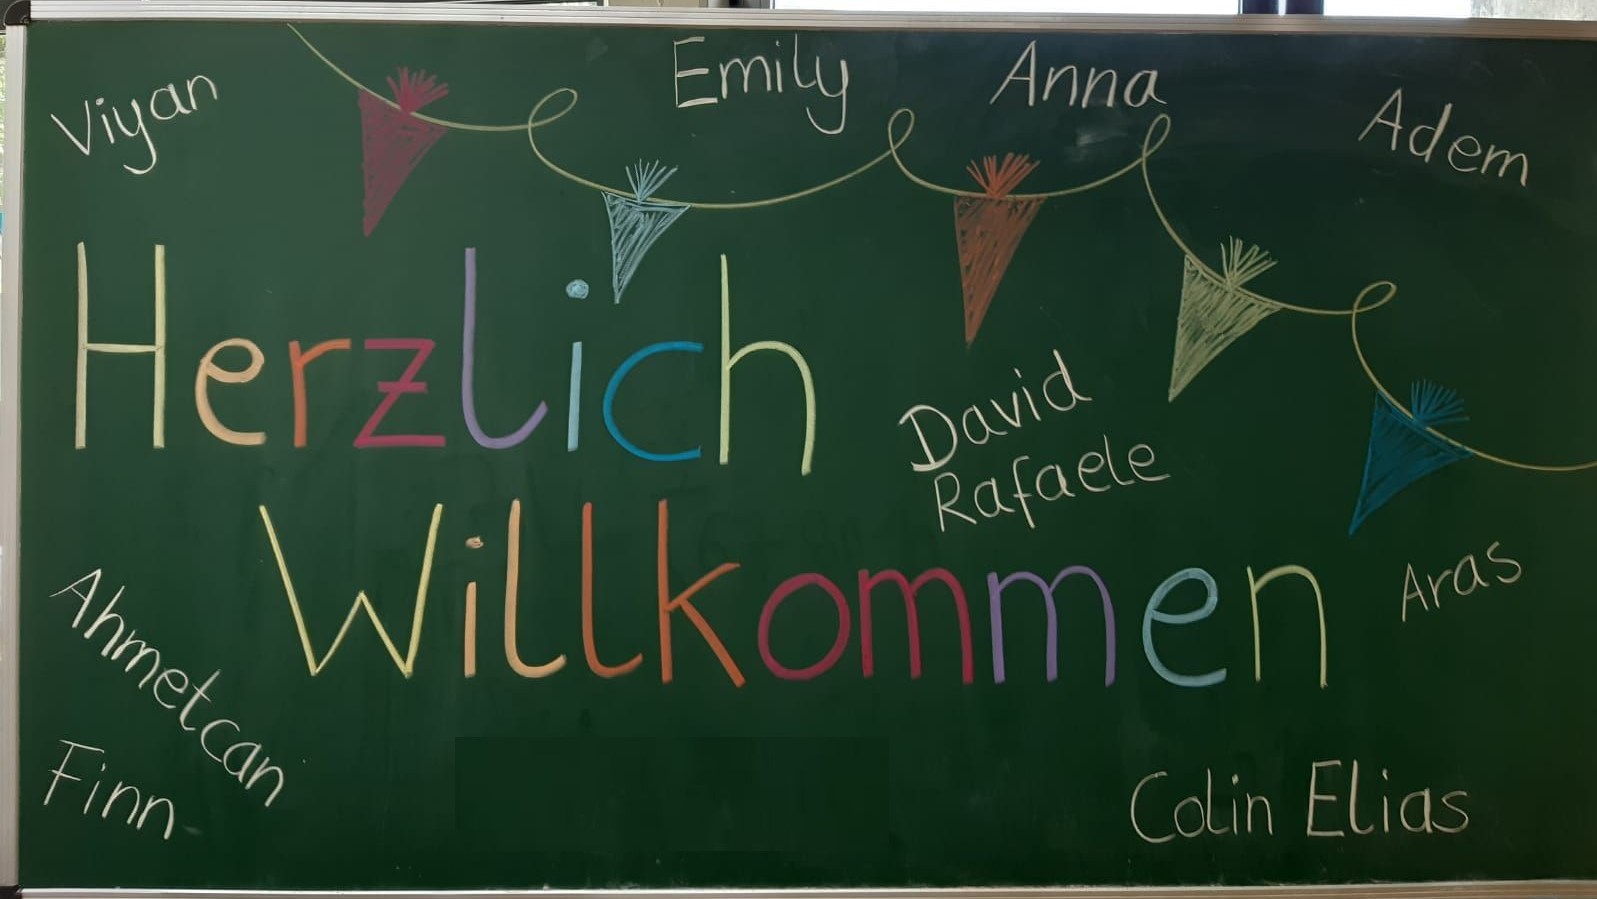 Viyan
Emily
Anna
Adem
Herzlich
David
Rafaele
Willkommen
Aras
Ahmetcan
Finn
Colin Elias